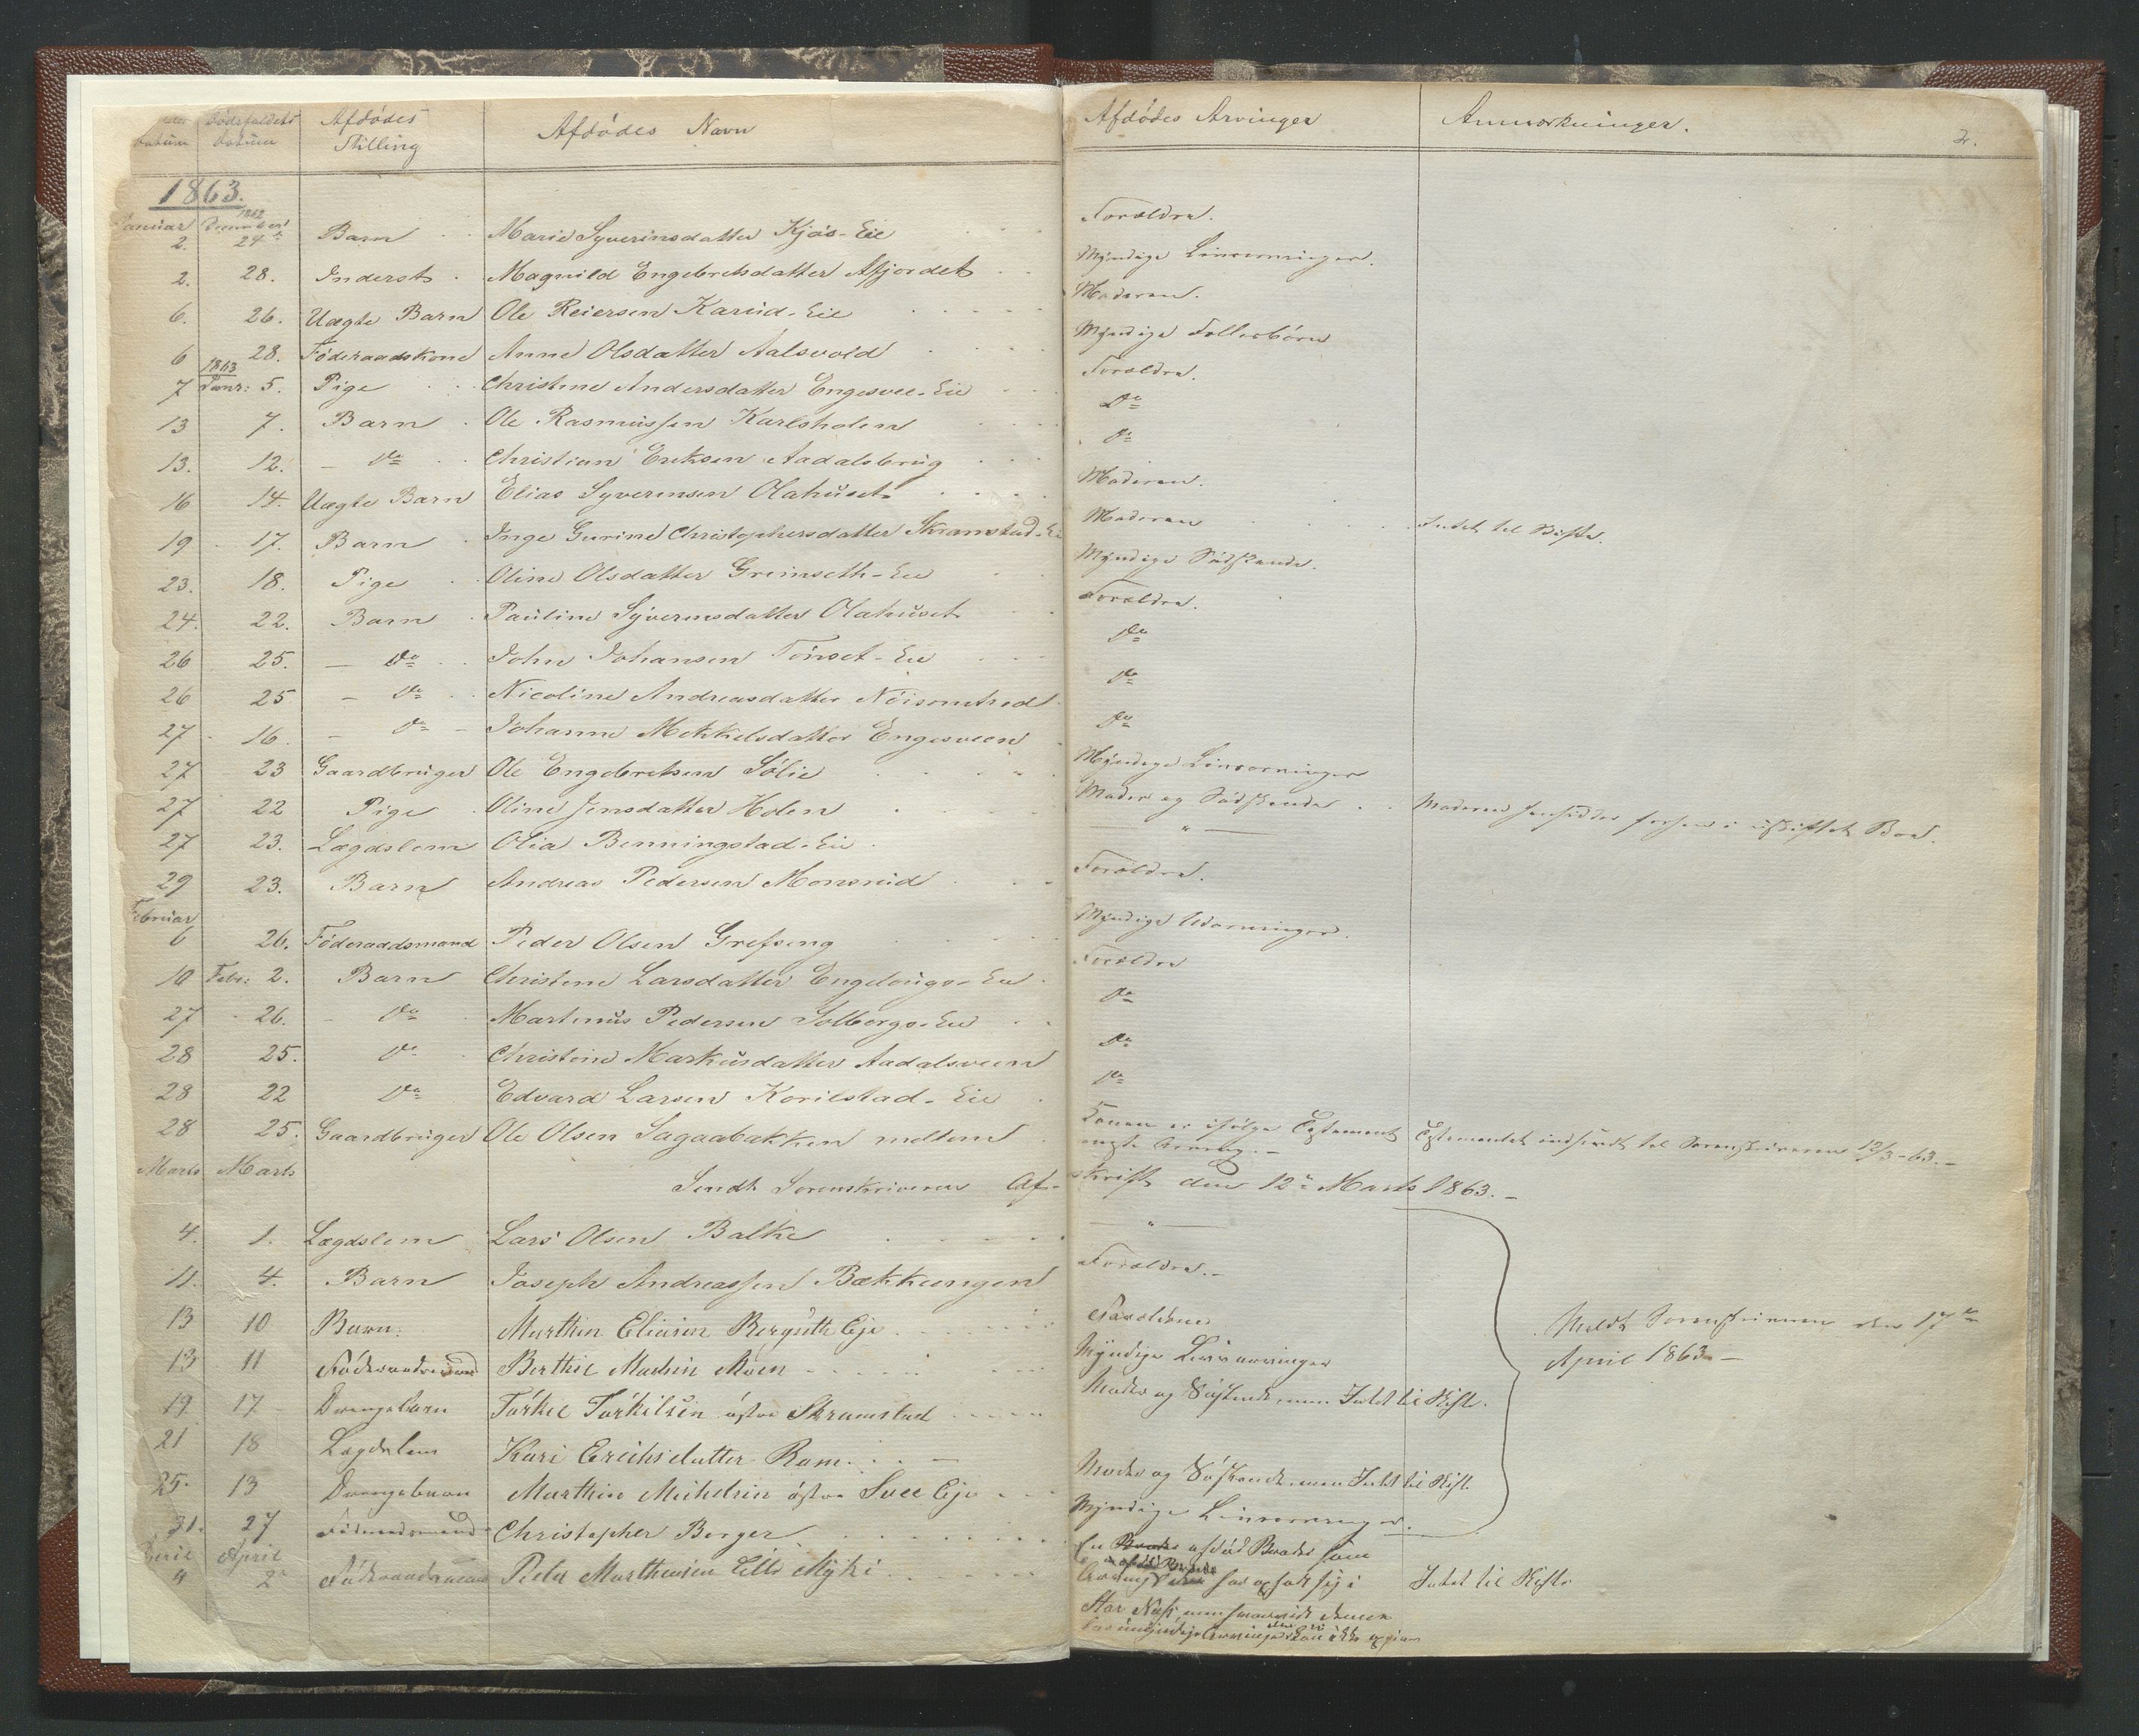 Datum Dödsfaldets Datum Afdödes Stilling Afdödes Navn Afdödes Arvinger Anmærkninger. 2.
1863.
Januar 1862 December
2. 24 Barn Marie Syverinsdatter Kjös-Eie Forældre.
2. 28. Inderst Magnild Engebretsdatter Afjordet Myndige Livsarvinger.
6. 26. Uægte Barn Ole Reiersen Karud-Eie Moderen.
6 28. Föderaadskone Anne Olsdatter Aalsvold Myndige Fællesbörn
1863
7 Janr: 5. Pige Christine Andersdatter Engesvee-Eie Forældre.
13 7. Barn Ole Rasmussen Karlsholen Do
13. 12. Do Christian Eriksen Aadalsbrug Do
16 14. Uægte Barn Elias Syverinsen Olahuset Moderen.
19 17. Barn Inge Gurine Christophersdatter Skramstad-Ei Moderen Intet til Skifte.
23. 18. Pige Oline Olsdatter Grimseth-Eie Myndige Södskende.
24. 22. Barn Pauline Syverinsdatter Olahuset Forældre.
26 25. Do John Johansen Tönset-Eie Do
26 25 Do Nicoline Andreasdatter Nöisomhed Do
27 16. Do Johanne Mekkelsdatter Engesveen Do
27 23 Gaardbruger Ole Engebretsen Sölie Myndige Livsarvinger
27 22 Pige Oline Jensdatter Holen Moder og Södskende Moderen hensidder i uskiftet Boe.
27 23. Lægdslem Olia Benningstad-Eie — " —
29 23. Barn Andreas Pedersen Monsrud Forældre.
Februar
6 26. Föderaadsmand Peder Olsen Grefseng Myndige Udarvinger.
10 Febr: 2. Barn Christine Larsdatter Engelougs-Eie Forældre
27 26. Do Martinus Pedersen Solbergs-Eie Do
28 25. Do Christine Markusdatter Aadalsveen Do
28 22 Do Edvard Larsen Korilstad-Eie Do
28 25. Gaardbruger Ole Olsen Sagaabakken mellem Konen er ifölge Testament Testamentet indsendt til Sorenskriveren 12/3-63.-
eneste Arving.-
Marts Marts Sendt Sorenskriveren Afskrift den 12te Marts 1863.-
4. 1. Lægdslem Lars Olsen Balke — " —
11. 4. Barn Joseph Andreassen Bækkeengen Forældre.-
13 10 Barn. Marthin Eliasen Bergseth Eje Forældrene
13 11 Föderaadsmand Berthil Madsen Moen Myndige Livsarvinger
Meldt Sorenskriveren den 17de
April 1863 —
19 17 Drengebarn Törkel Törkilsen östre Skramstad Moder og Söskende, men Intet til Skifte.
21 18 Lægdslem Kari Erichsdatter Rom
25. 13 Drengebarn Marthin Michelsen östre Svee Eje Moder og Söskende, men Intet til Skifte
31. 27 Föderaadsmand Christopher Berger Myndige Livsarvinger.
April April
4 2 Föderaadsmand Peder Marthinsen Lille Myki En afdöd Broder som Intet til Skifte